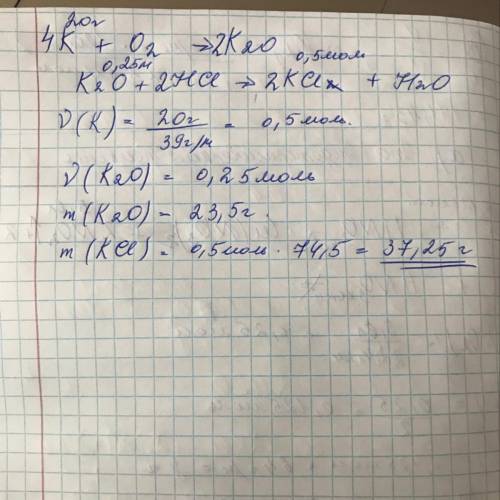 20г
4K + O2 → 2K2O
0,25м 0,5мол
K2O + 2HCl → 2KCl + H2O
ν(K) = 20г / 39г/м = 0,5моль.
ν(K2O) = 0,25моль
m(K2O) = 23,5г.
m(KCl) = 0,5моль · 74,5 = 37,25г